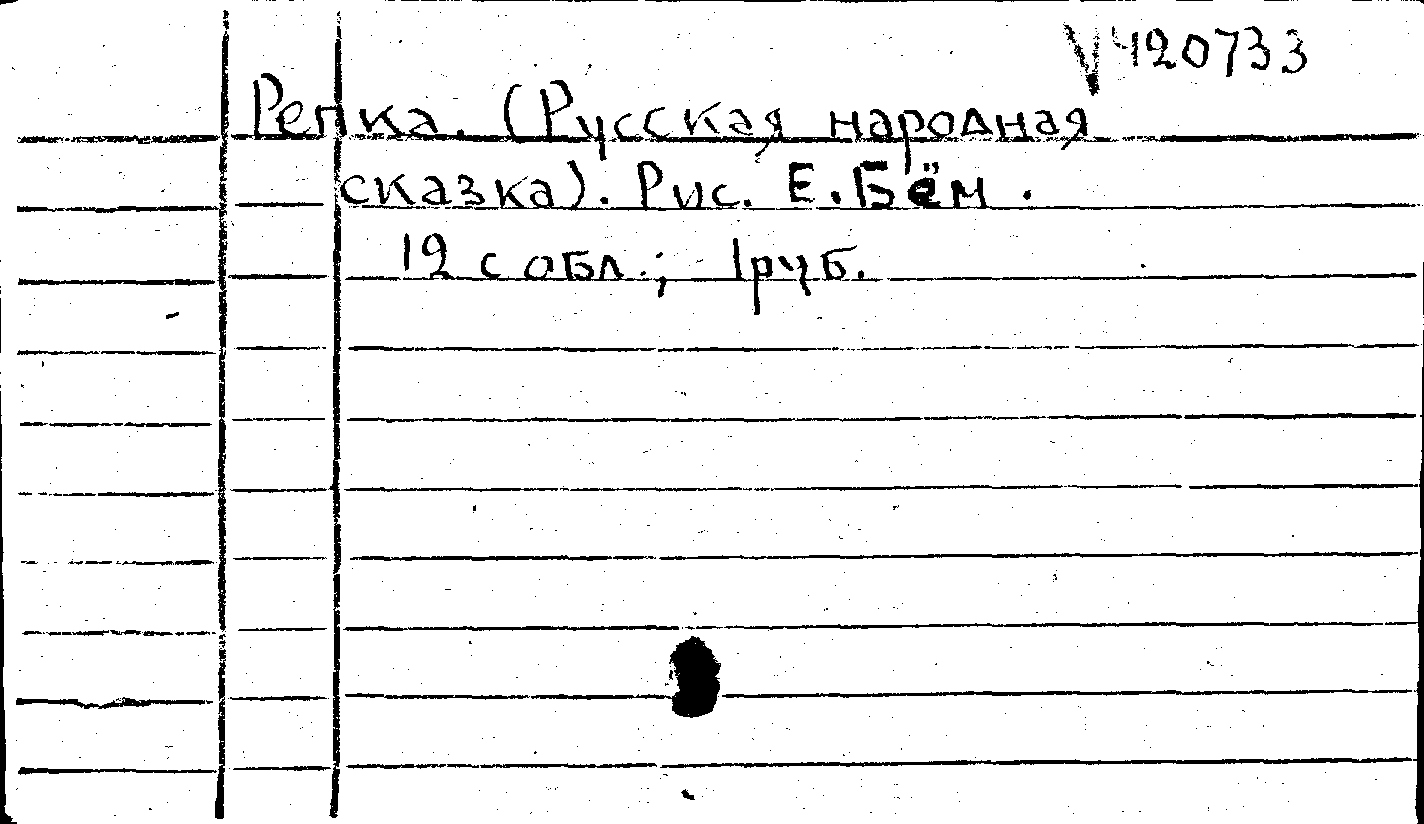 V420733
Репка. (Русская народная
сказка). Рис. Е. Бём.
12 с обл.; 1 руб.